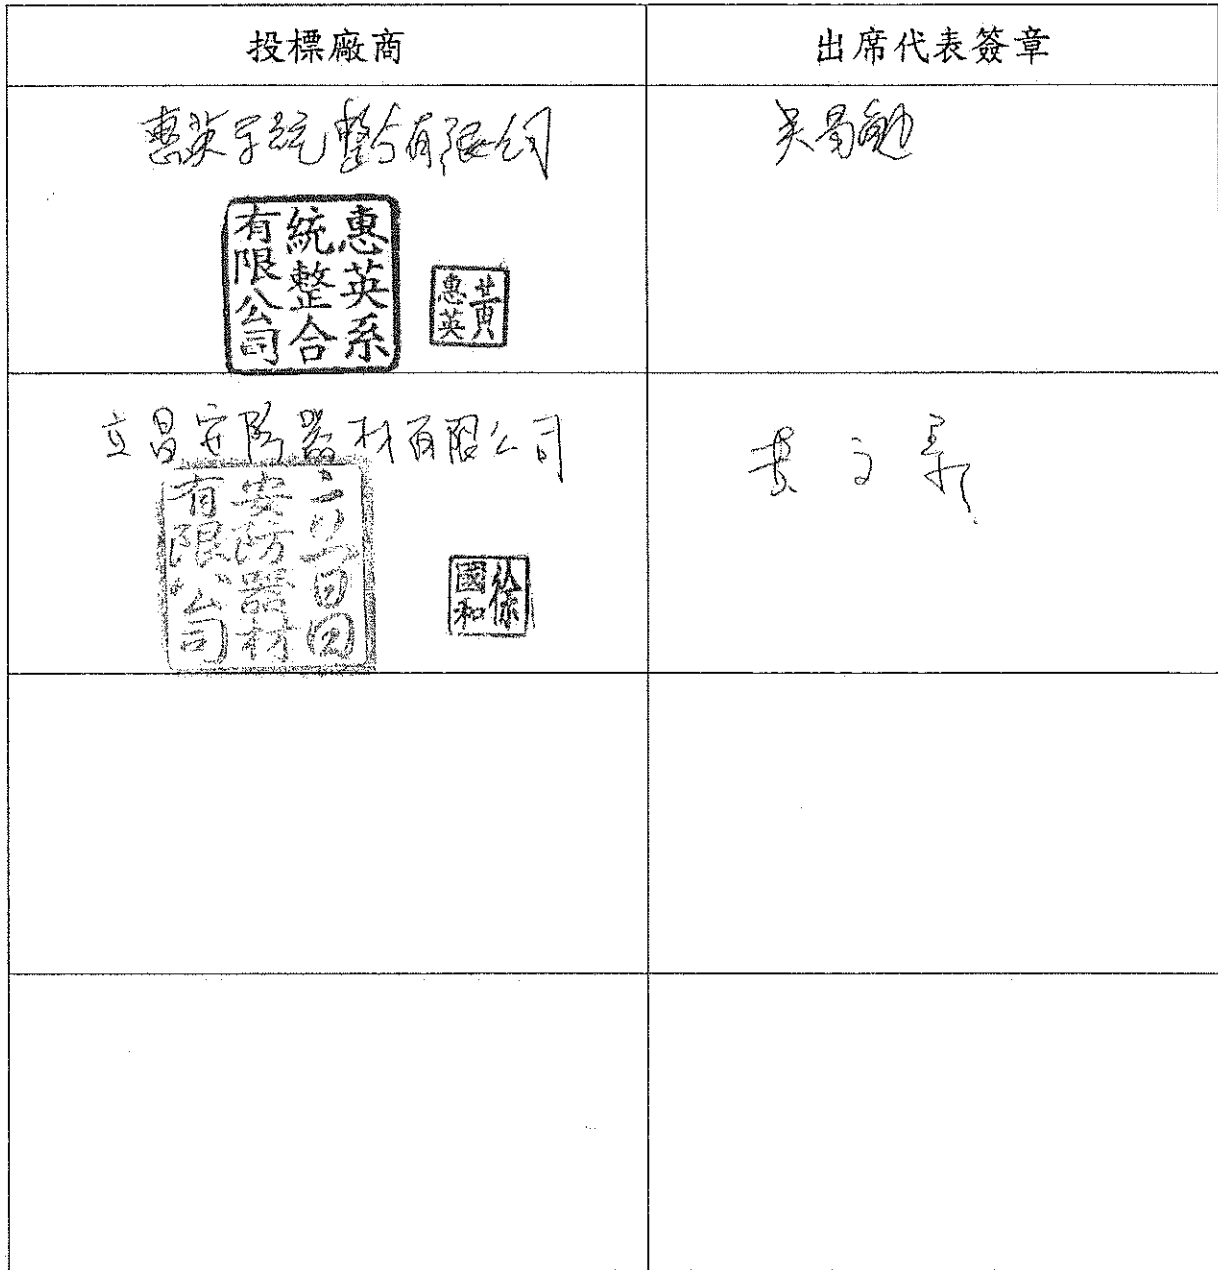 投標廠商 出席代表簽章
惠英系統整合有限公司 吳
惠英系
統整合
有限公司
黃
惠英
立昌安防器材有限公司 黃文
立昌
安防器材
有限公司
徐
國和